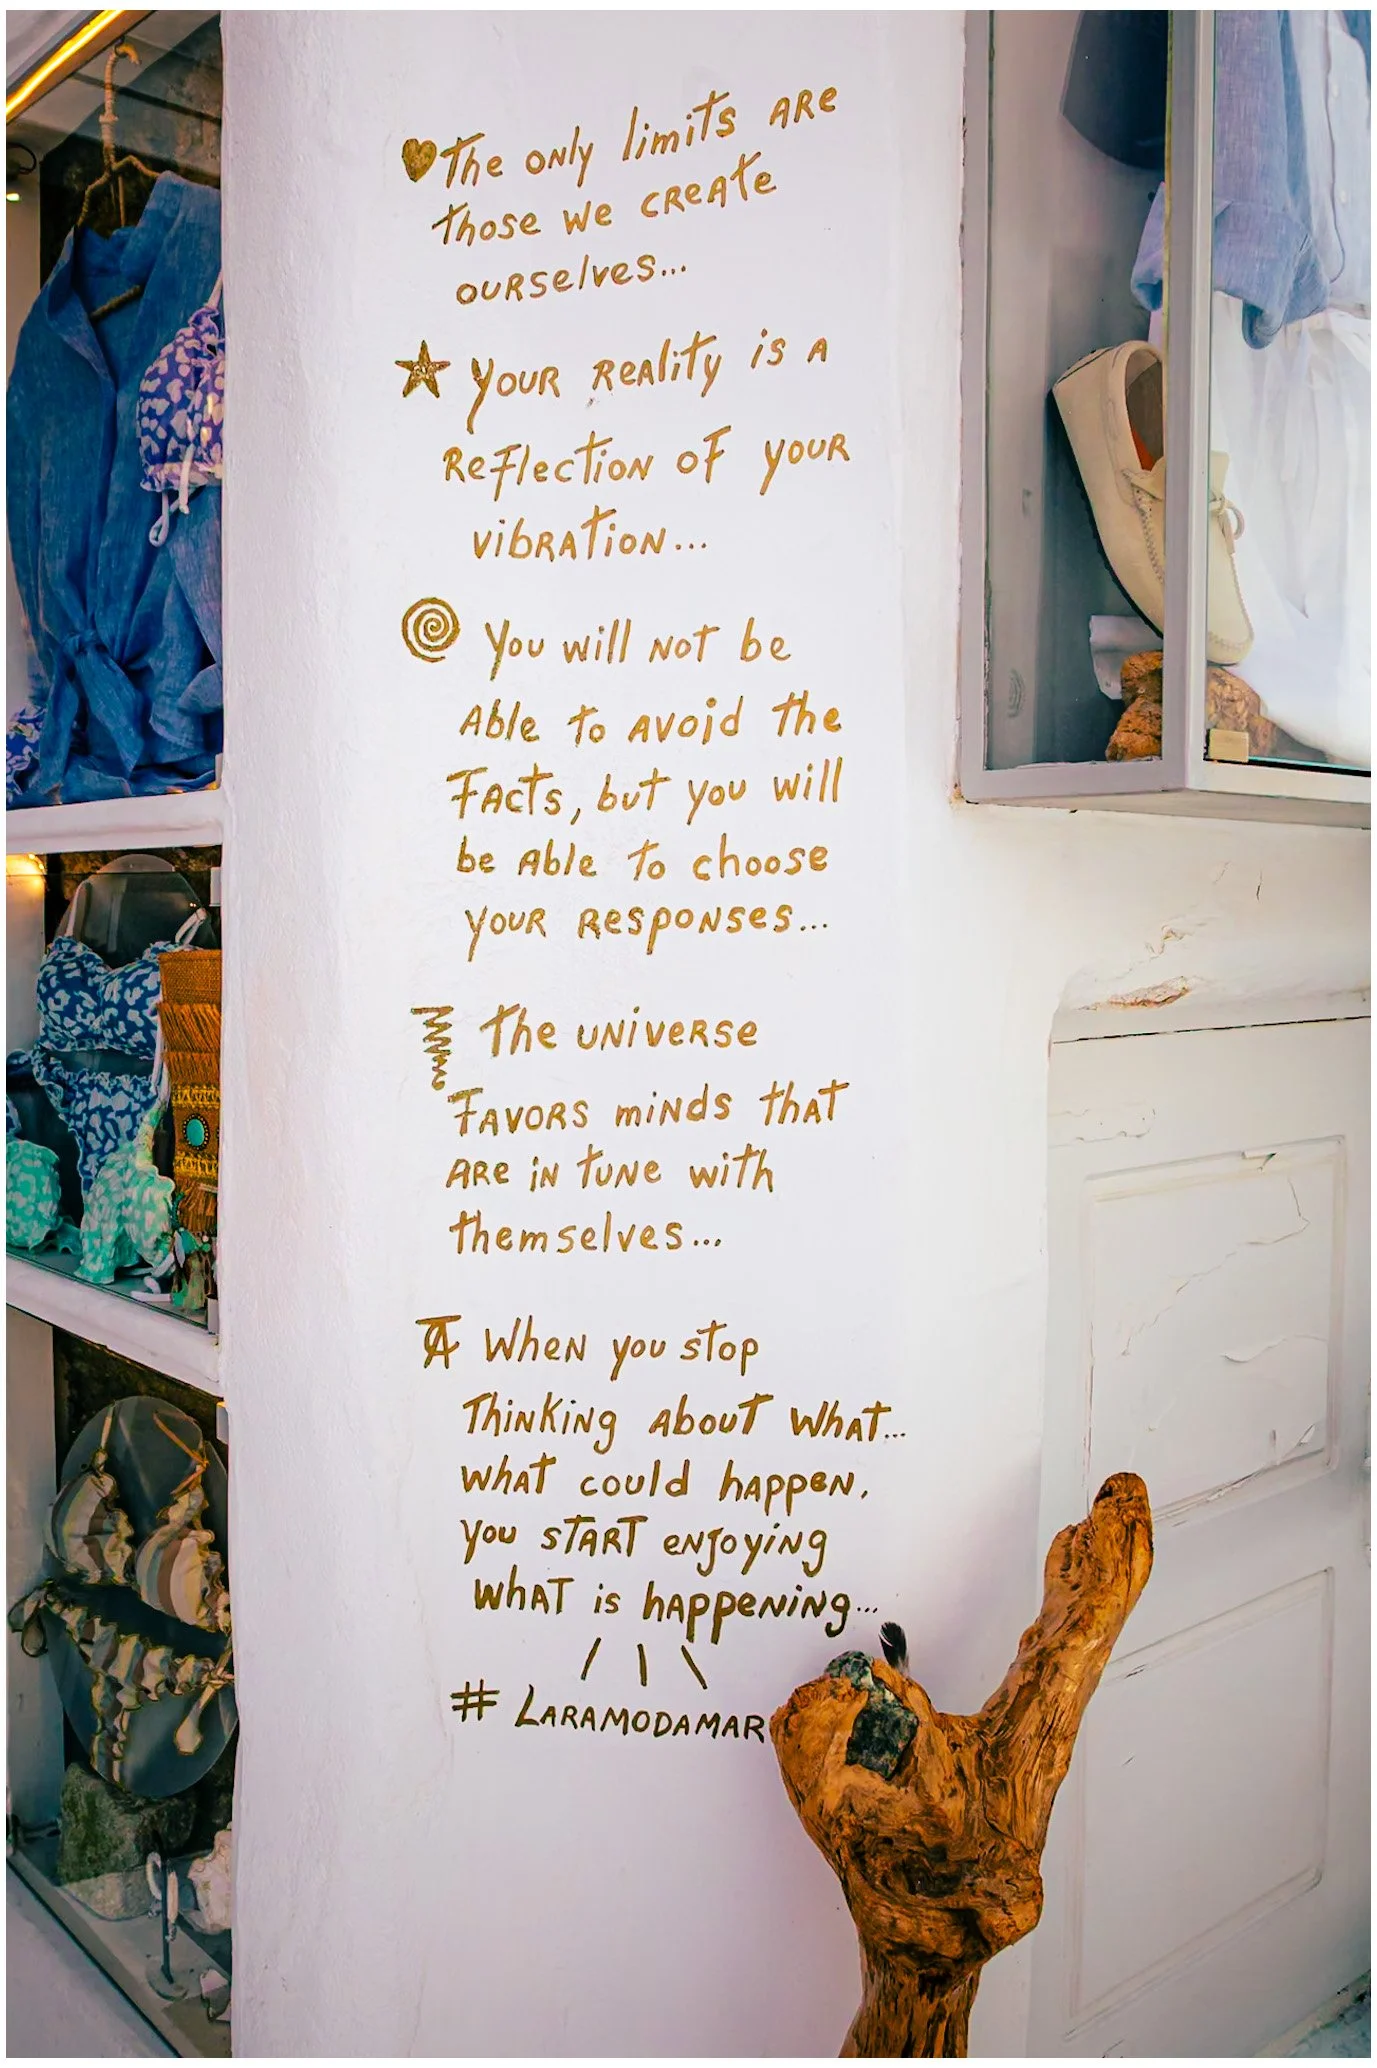 The only limits are
those we create
ourselves...
Your reality is a
reflection of your
vibration...
You will not be
able to avoid the
facts, but you will
be able to choose
your responses...
The universe
favors minds that
are in tune with
themselves...
When you stop
thinking about what...
what could happen,
you start enjoying
what is happening...
# LARAMODAMAR